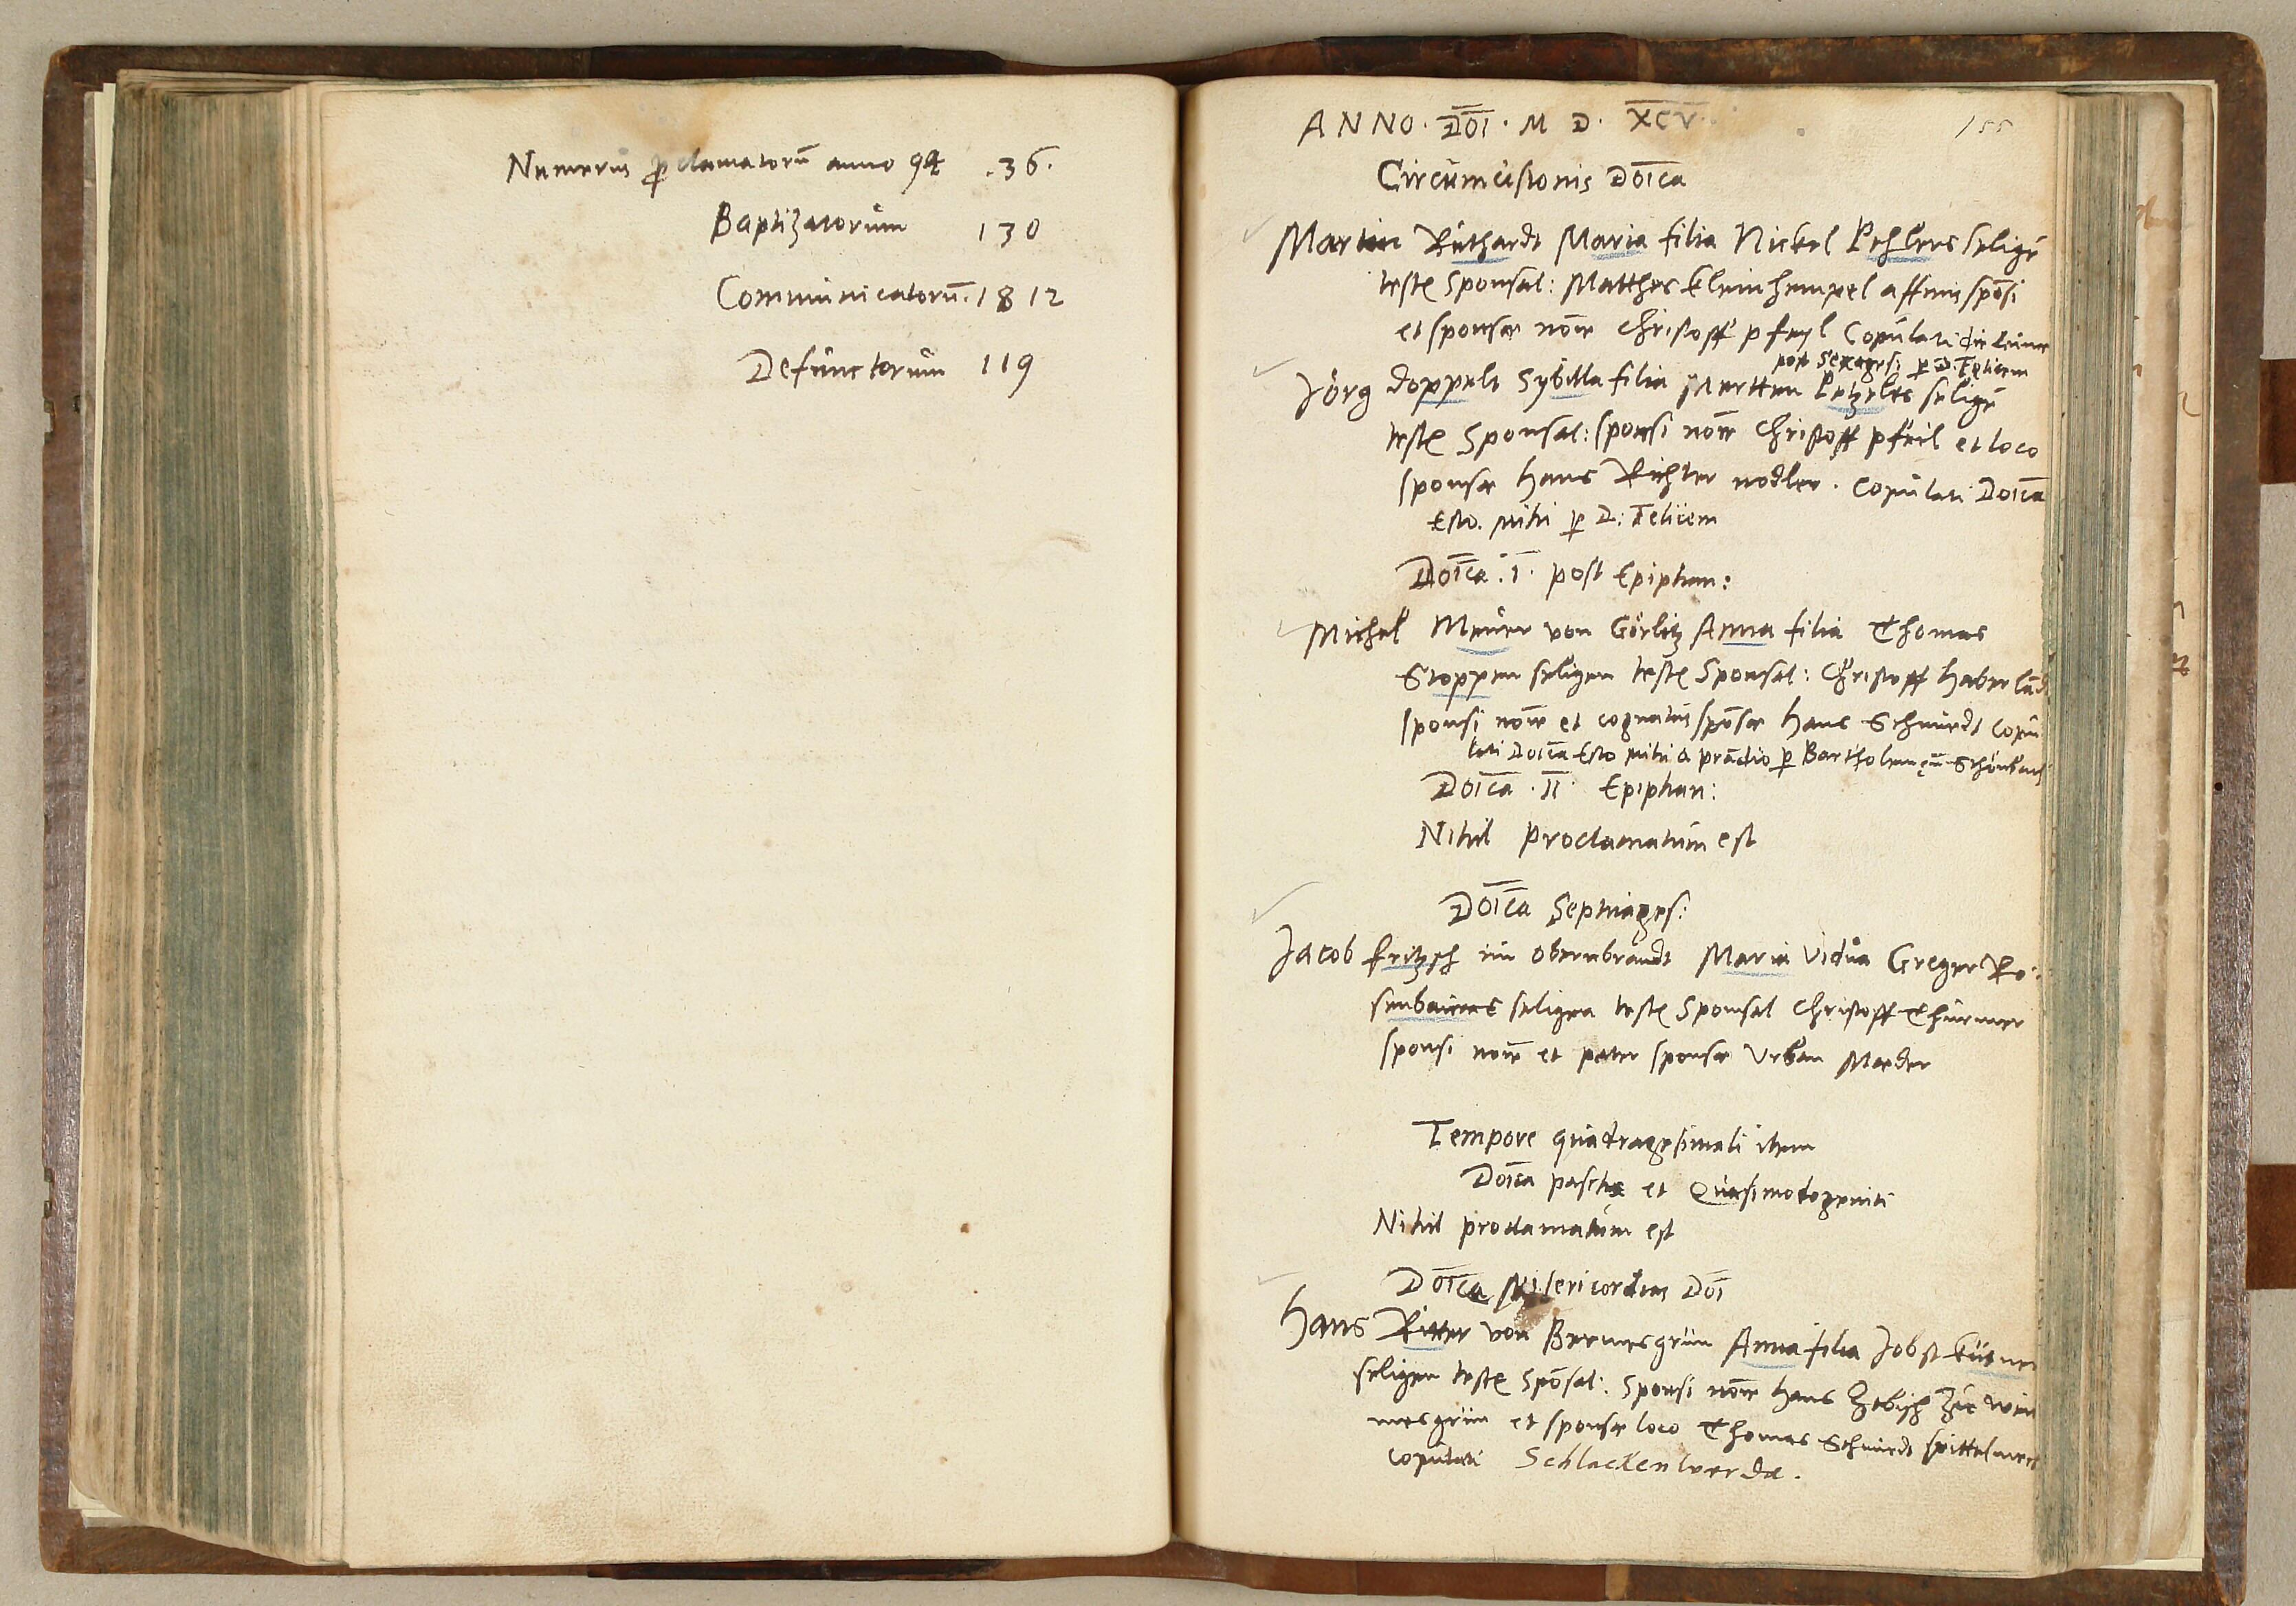 Numerus proclamatorū anno 94 .36.
Baptizatorum 130
Communicatorū. 1812
Defunctorum 119
ANNO. DOI. M D. XCV.
155
Circumcisionis Doica
Martin Ruthardt Maria filia Nickel Pehlers selige
teste Sponsal: Matthes Kleinhempel affinis spōsi
et sponsæ noīe Christoff pfeyl Copulati die
post Sexagesi: p D. Felicem
Jörg doppelt Sybilla filia Mertten Petzelts selige
teste Sponsal: sponsi noīe Christoff pfeil et loco
sponsæ Hans Richter nodler. Copulati Doīca
Esto. mihi p D: Felicem
Doīca. I. post Epiphan:
Michel Meurer von Görlitz Anna filia Thomas
Stoppen seligen teste Sponsal: Christoff Haberlād
sponsi noīe et cognatus spōsæ Hans Schmidt Copu
lati Doīca Esto mihi a prādio p Bartholemęū Schönbach
Doīca. II. Epiphan:
Nihil Proclamatum est
Doīca Septuages:
Jacob Fritzsch im Obernbrandt Maria Vidua Greger Ro:
senbaums seligen teste Sponsal Christoff Thürmer
sponsi noīe et pater sponsæ Urban Mæder
Tempore quadragesimali item
Doīca paschæ et Quasimodogeniti
Nihil proclamatum est
Doīca Misericordias Doī
Hans Ritter von Bermesgrün Anna filia Jobst
seligen teste Spōsal: Sponsi noīe Hans Zebisch Zue
mesgrün et sponsæ loco Thomas Schmidt
copulati Schlackenwerdæ.